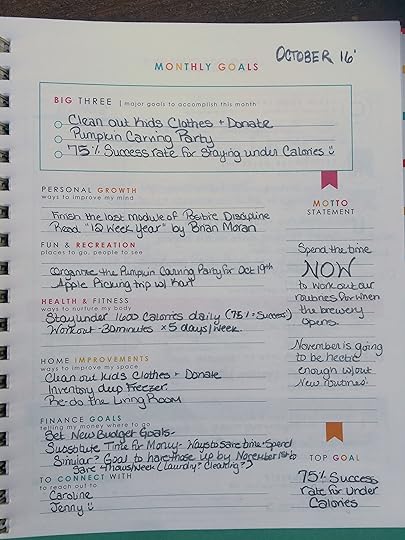 OCTOBER 16'
MONTHLY GOALS
BIG THREE | major goals to accomplish this month
Clean out Kids Clothes + Donate
Pumpkin Carving Party
75% Success rate for staying under Calories
PERSONAL GROWTH
ways to improve my mind
Finish the last module of Positive Discipline
Read "12 Week Year" by Brian Moran
FUN & RECREATION
places to go, people to see
Organize the Pumpkin Carving Party for Oct 19th
Apple Picking trip w/
HEALTH & FITNESS
ways to nurture my body
Stay under 1600 Calories daily (75% = Success)
Workout - 30 minutes x 5 days/week.
HOME IMPROVEMENTS
ways to improve my space
Clean out Kids Clothes + Donate
Inventory deep Freezer.
Re-do the Living Room
FINANCE GOALS
telling my money where to go
Set New Budget Goals-
Substitute Time for Money - Ways to save time + Spend
Similar? Goal to have those up by November 1st to
Save 4 hours/week (Laundry? Cleaning?)
TO CONNECT WITH
to reach out to
Caroline
Jenny
MOTTO
STATEMENT
Spend the time
NOW
to work out our
routines for when
the brewery
opens.
November is going
to be hectic
enough w/out
New routines.
TOP GOAL
75% Success
rate for Under
Calories